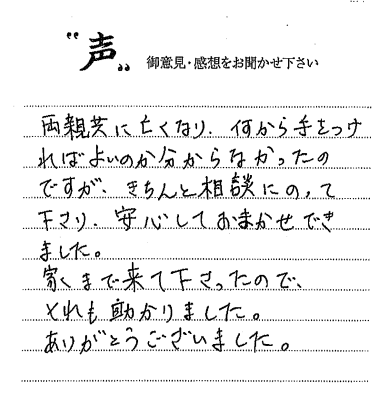 "声"
御意見・感想をお聞かせ下さい
両親共に亡くなり、何から手をつけ
ればよいのか分からなかったの
ですが、きちんと相談にのって
下さり、安心しておまかせでき
ました。
家まで来て下さったので、
それも助かりました。
ありがとうございました。